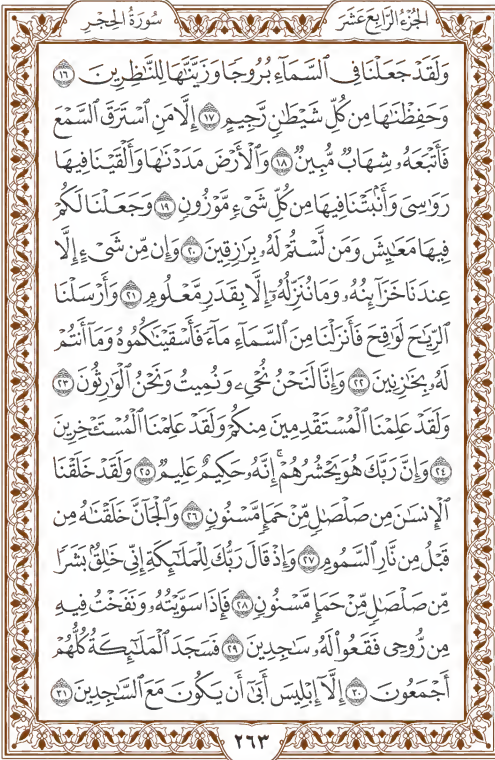 الجُزْءُ الرَّابِعَ عَشَرَ
سُورَةُ الحِجْرِ
وَلَقَدْ جَعَلْنَا فِي السَّمَآءِ بُرُوجًا وَزَيَّنَّٰهَا لِلنَّٰظِرِينَ ١٦
وَحَفِظْنَٰهَا مِن كُلِّ شَيْطَٰنٍ رَّجِيمٍ ١٧ إِلَّا مَنِ ٱسْتَرَقَ ٱلسَّمْعَ
فَأَتْبَعَهُۥ شِهَابٌ مُّبِينٌ ١٨ وَٱلْأَرْضَ مَدَدْنَٰهَا وَأَلْقَيْنَا فِيهَا
رَوَٰسِيَ وَأَنۢبَتْنَا فِيهَا مِن كُلِّ شَيْءٍ مَّوْزُونٍ ١٩ وَجَعَلْنَا لَكُمْ
فِيهَا مَعَٰيِشَ وَمَن لَّسْتُمْ لَهُۥ بِرَٰزِقِينَ ٢٠ وَإِن مِّن شَيْءٍ إِلَّا
عِندَنَا خَزَآئِنُهُۥ وَمَا نُنَزِّلُهُۥٓ إِلَّا بِقَدَرٍ مَّعْلُومٍ ٢١ وَأَرْسَلْنَا
ٱلرِّيَٰحَ لَوَٰقِحَ فَأَنزَلْنَا مِنَ ٱلسَّمَآءِ مَآءً فَأَسْقَيْنَٰكُمُوهُ وَمَآ أَنتُمْ
لَهُۥ بِخَٰزِنِينَ ٢٢ وَإِنَّا لَنَحْنُ نُحْيِۦ وَنُمِيتُ وَنَحْنُ ٱلْوَٰرِثُونَ ٢٣
وَلَقَدْ عَلِمْنَا ٱلْمُسْتَقْدِمِينَ مِنكُمْ وَلَقَدْ عَلِمْنَا ٱلْمُسْتَـْٔخِرِينَ
٢٤ وَإِنَّ رَبَّكَ هُوَ يَحْشُرُهُمْ ۚ إِنَّهُۥ حَكِيمٌ عَلِيمٌ ٢٥ وَلَقَدْ خَلَقْنَا
ٱلْإِنسَٰنَ مِن صَلْصَٰلٍ مِّنْ حَمَإٍ مَّسْنُونٍ ٢٦ وَٱلْجَآنَّ خَلَقْنَٰهُ مِن
قَبْلُ مِن نَّارِ ٱلسَّمُومِ ٢٧ وَإِذْ قَالَ رَبُّكَ لِلْمَلَٰٓئِكَةِ إِنِّي خَٰلِقٌۢ بَشَرًا
مِّن صَلْصَٰلٍ مِّنْ حَمَإٍ مَّسْنُونٍ ٢٨ فَإِذَا سَوَّيْتُهُۥ وَنَفَخْتُ فِيهِ
مِن رُّوحِي فَقَعُوا۟ لَهُۥ سَٰجِدِينَ ٢٩ فَسَجَدَ ٱلْمَلَٰٓئِكَةُ كُلُّهُمْ
أَجْمَعُونَ ٣٠ إِلَّآ إِبْلِيسَ أَبَىٰٓ أَن يَكُونَ مَعَ ٱلسَّٰجِدِينَ ٣١
٢٦٣